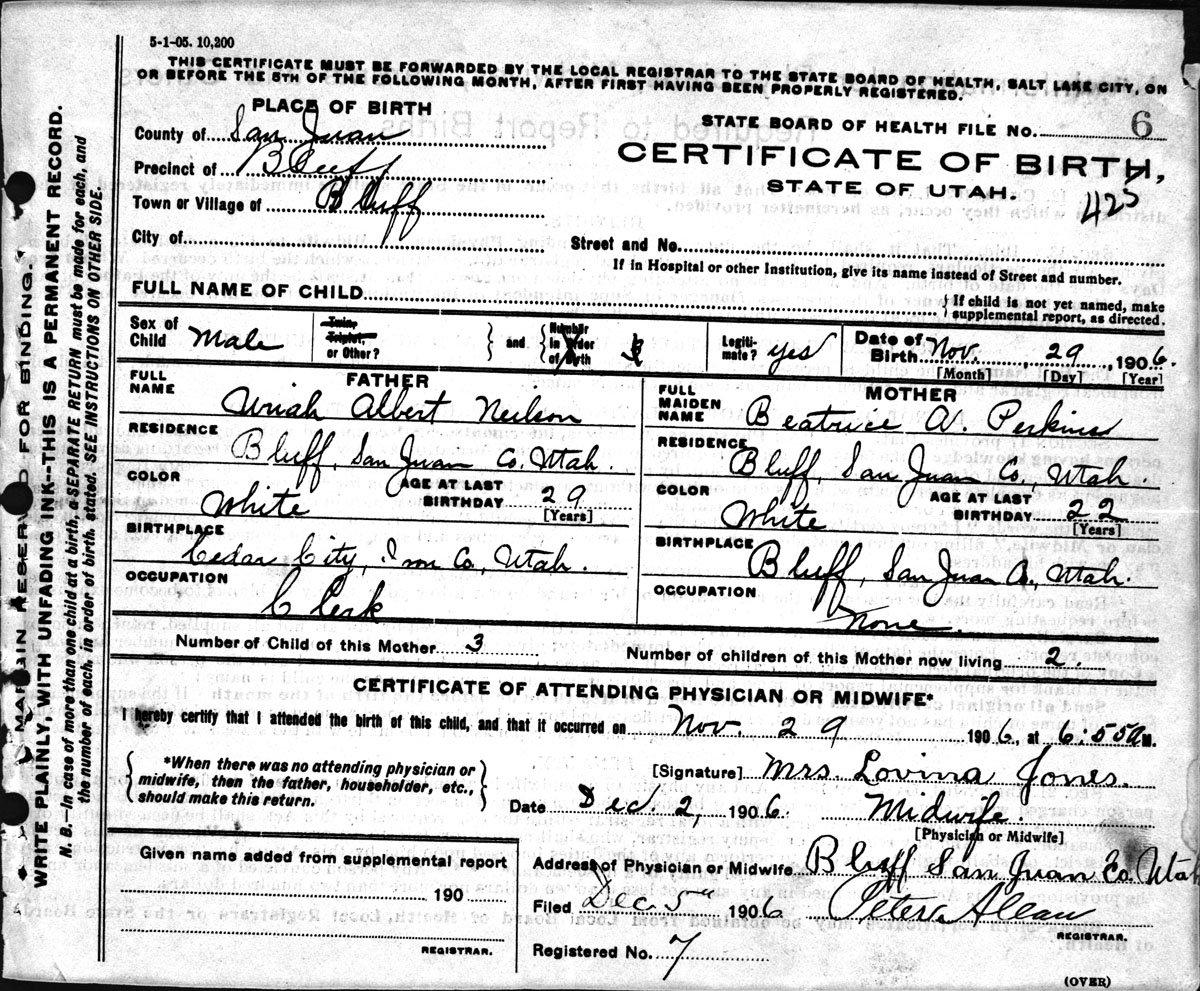 5-1-05. 10,200
THIS CERTIFICATE MUST BE FORWARDED BY THE LOCAL REGISTRAR TO THE STATE BOARD OF HEALTH, SALT LAKE CITY, ON
OR BEFORE THE 5TH OF THE FOLLOWING MONTH, AFTER FIRST HAVING BEEN PROPERLY REGISTERED.
PLACE OF BIRTH
County of San Juan
Precinct of Bluff
Town or Village of Bluff
City of
STATE BOARD OF HEALTH FILE NO. 6
CERTIFICATE OF BIRTH,
STATE OF UTAH.
425
Street and No.
If in Hospital or other Institution, give its name instead of Street and number.
FULL NAME OF CHILD
{ If child is not yet named, make
supplemental report, as directed.
Sex of Child Male
Twin, Triplet, or Other?
} and { Number in Order of Birth
Legiti-mate? yes
Date of Birth Nov. 29, 1906.
[Month] [Day] [Year]
FATHER
FULL NAME Uriah Albert Neilson
RESIDENCE Bluff, San Juan Co, Utah.
COLOR White
AGE AT LAST BIRTHDAY 29
[Years]
BIRTHPLACE Cedar City, Iron Co, Utah.
OCCUPATION Clerk
MOTHER
FULL MAIDEN NAME Beatrice A. Perkins
RESIDENCE Bluff, San Juan Co., Utah.
COLOR White
AGE AT LAST BIRTHDAY 22
[Years]
BIRTHPLACE Bluff, San Juan Co, Utah.
OCCUPATION None.
Number of Child of this Mother 3
Number of children of this Mother now living 2.
CERTIFICATE OF ATTENDING PHYSICIAN OR MIDWIFE*
I hereby certify that I attended the birth of this child, and that it occurred on Nov. 29 1906, at 6:55 a M.
{ *When there was no attending physician or
midwife, then the father, householder, etc.,
should make this return. }
[Signature] Mrs. Lovina Jones.
Date Dec. 2, 1906. Midwife.
[Physician or Midwife]
Given name added from supplemental report
190
REGISTRAR.
Address of Physician or Midwife Bluff San Juan Co. Utah
Filed Dec. 5th 1906 Peter Allan
REGISTRAR.
Registered No. 7
(OVER)
"MARGIN RESERVED FOR BINDING."
WRITE PLAINLY, WITH UNFADING INK--THIS IS A PERMANENT RECORD.
N. B.—In case of more than one child at a birth, a SEPARATE RETURN must be made for each, and
the number of each, in order of birth, stated. SEE INSTRUCTIONS ON OTHER SIDE.